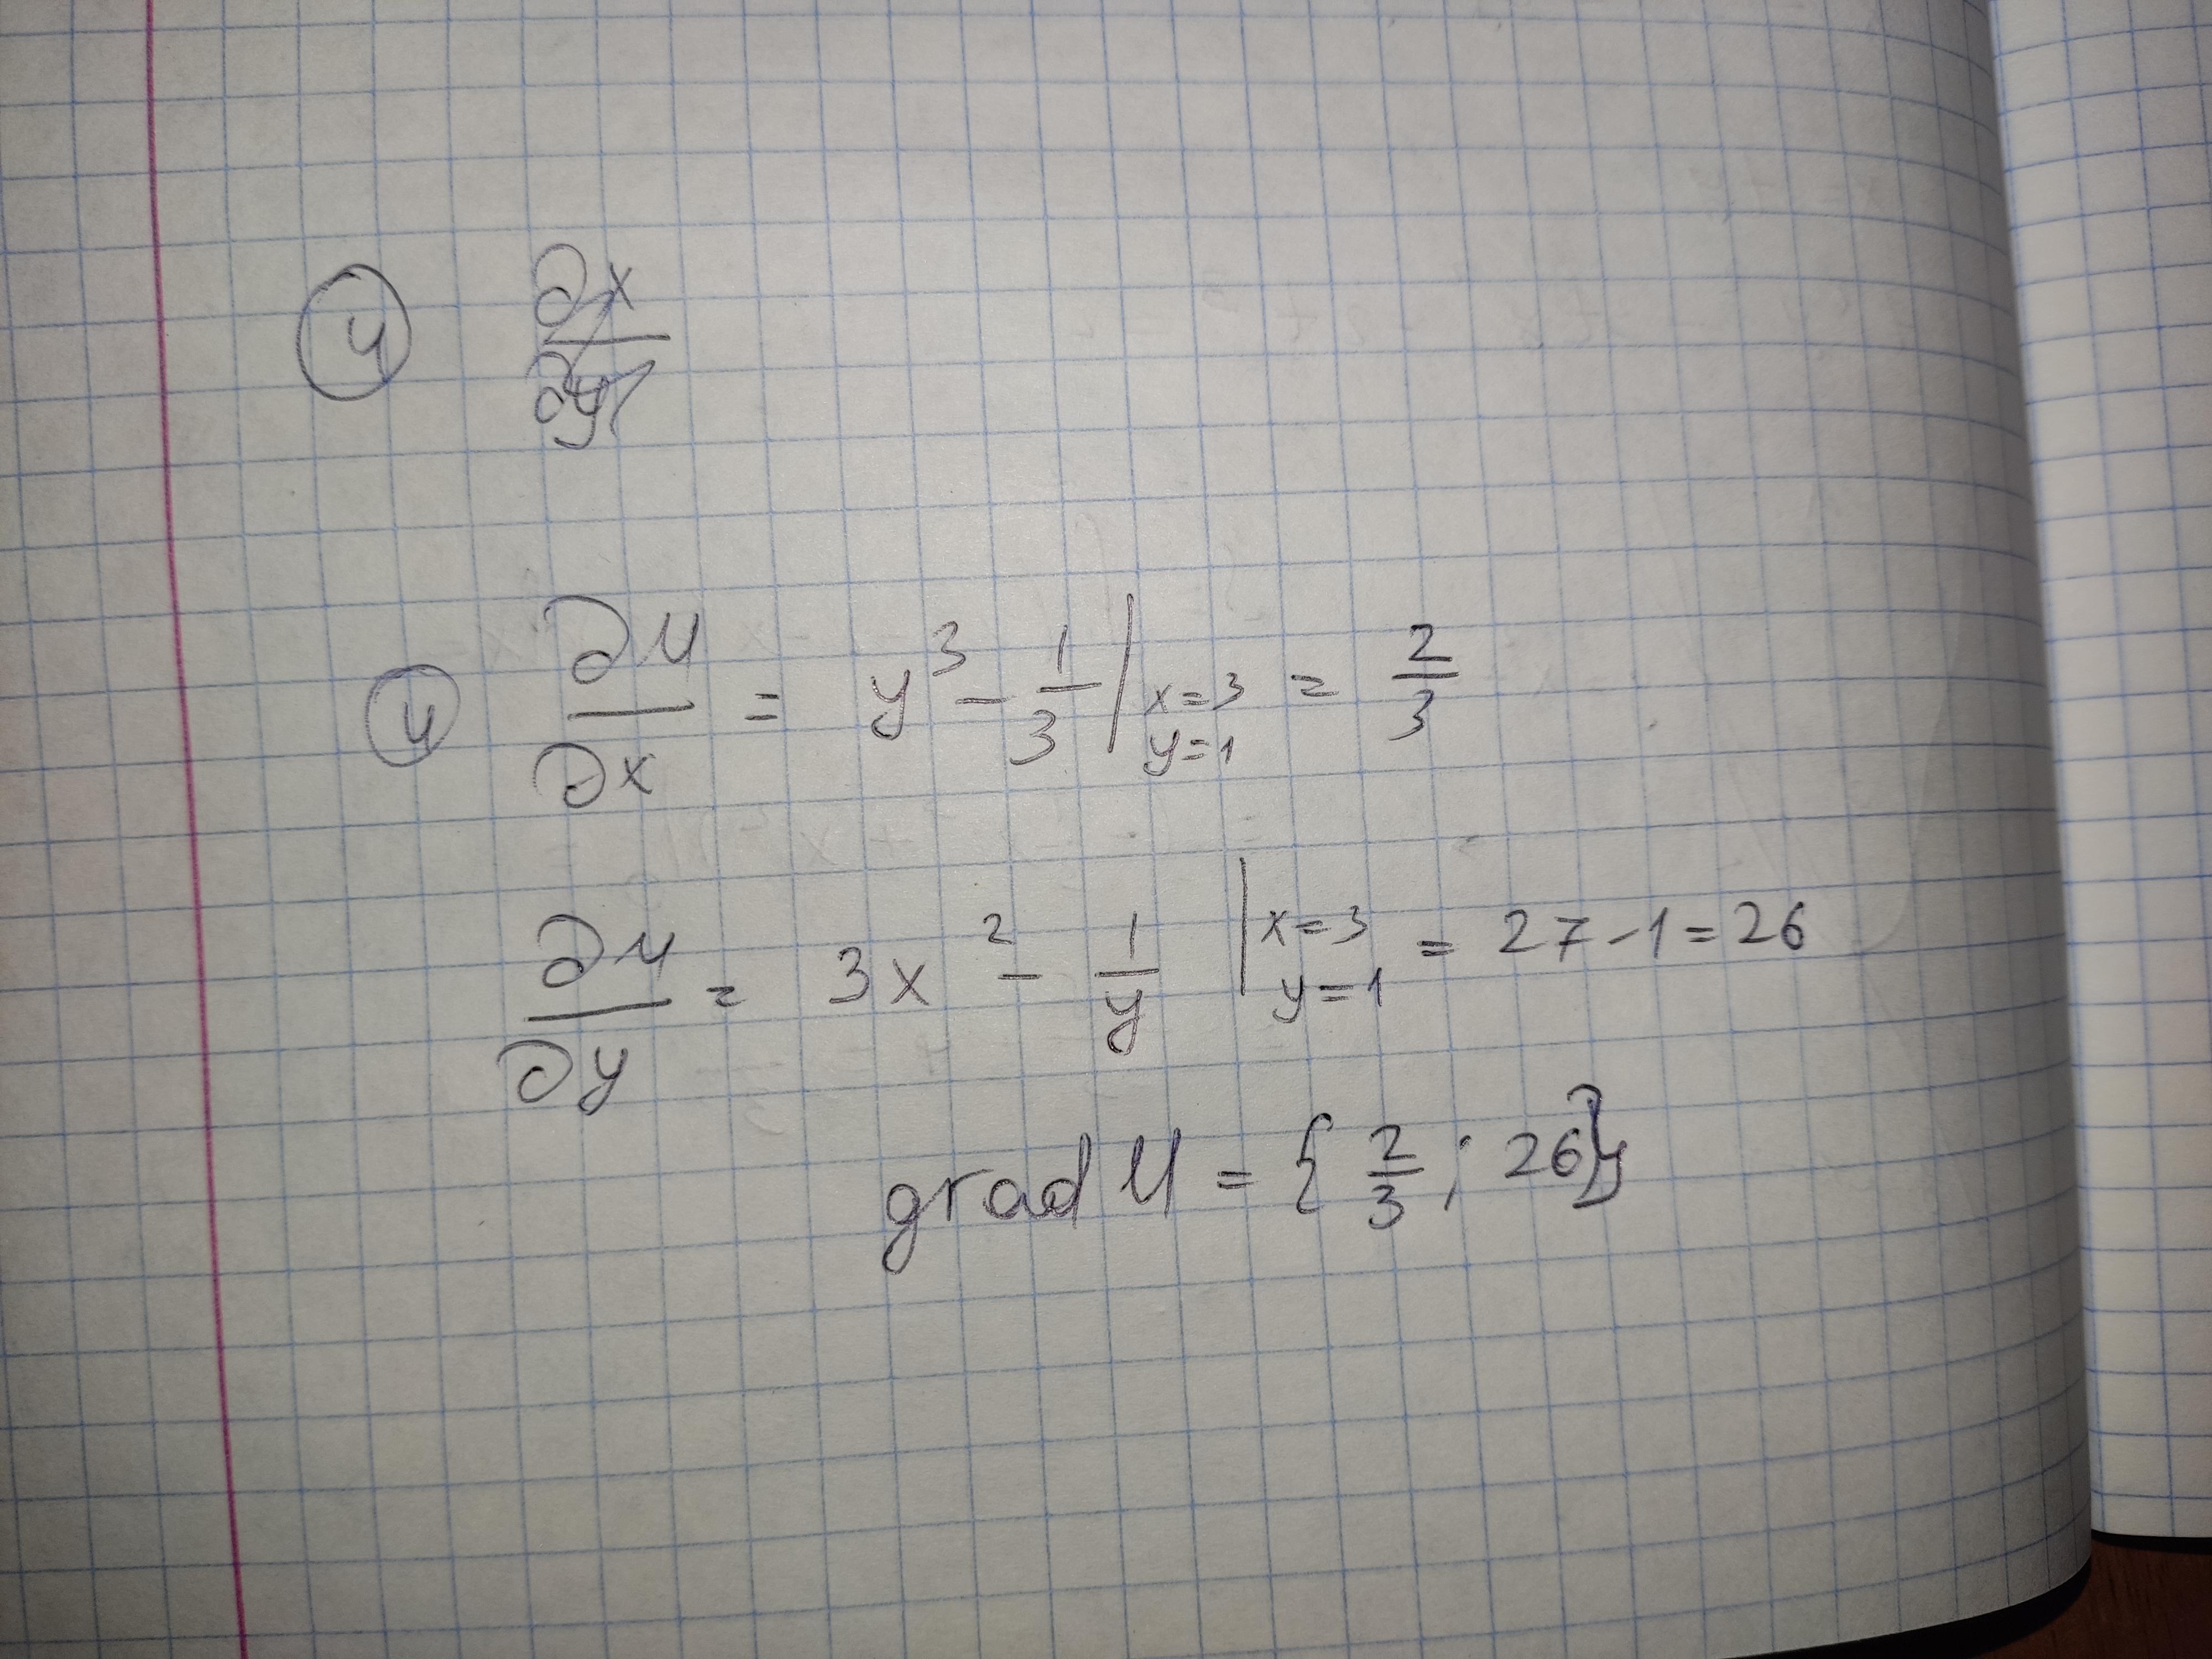 ④ ∂x/∂y
④ ∂u/∂x = y³ - 1/3 | x=3 y=1 = 2/3
∂u/∂y = 3x² - 1/y | x=3 y=1 = 27-1=26
grad U = { 2/3 ; 26}